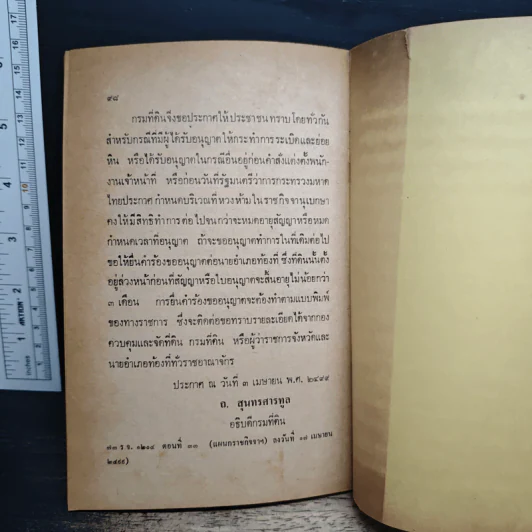 ๙๘
กรมที่ดินจึงขอประกาศให้ประชาชนทราบโดยทั่วกัน
สำหรับกรณีที่มีผู้ได้รับอนุญาตให้กระทำการระเบิดและย่อย
หิน หรือได้รับอนุญาตในกรณีอื่นอยู่ก่อนคำสั่งแต่งตั้งพนัก-
งานเจ้าหน้าที่ หรือก่อนวันที่รัฐมนตรีว่าการกระทรวงมหาด
ไทยประกาศ กำหนดบริเวณที่หวงห้ามในราชกิจจานุเบกษา
คงให้มีสิทธิทำการต่อไปจนกว่าจะหมดอายุสัญญาหรือหมด
กำหนดเวลาที่อนุญาต ถ้าจะขออนุญาตทำการในที่เดิมต่อไป
ขอให้ยื่นคำร้องขออนุญาตต่อนายอำเภอท้องที่ ซึ่งที่ดินนั้นตั้ง
อยู่ล่วงหน้าก่อนที่สัญญาหรือใบอนุญาตจะสิ้นอายุไม่น้อยกว่า
๓ เดือน การยื่นคำร้องขออนุญาตจะต้องทำตามแบบพิมพ์
ของทางราชการ ซึ่งจะติดต่อขอทราบรายละเอียดได้จากกอง
ควบคุมและจัดที่ดิน กรมที่ดิน หรือผู้ว่าราชการจังหวัดและ
นายอำเภอท้องที่ทั่วราชอาณาจักร
ประกาศ ณ วันที่ ๓ เมษายน พ.ศ. ๒๔๙๙
ถ. สุนทรศารทูล
อธิบดีกรมที่ดิน
๗๓ ร.จ. ๑๒๐๔ ตอนที่ ๓๓ (แผนกราชกิจจาฯ) ลงวันที่ ๑๗ เมษายน
๒๔๙๙)